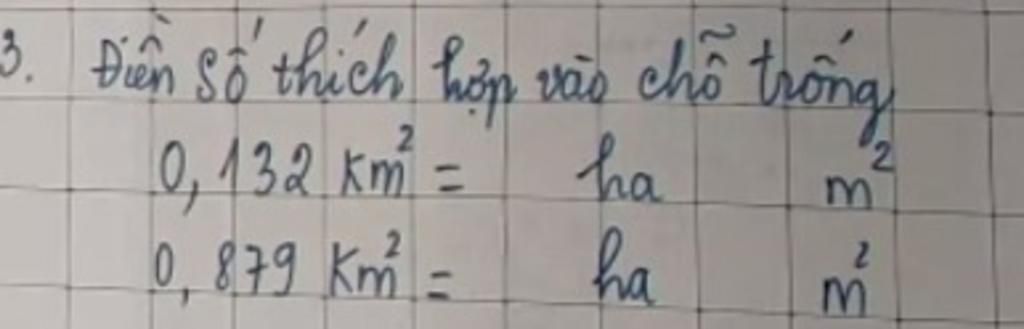 3. Điền số thích hợp vào chỗ trống
0,132 km² = ha m²
0,879 km² = ha m²